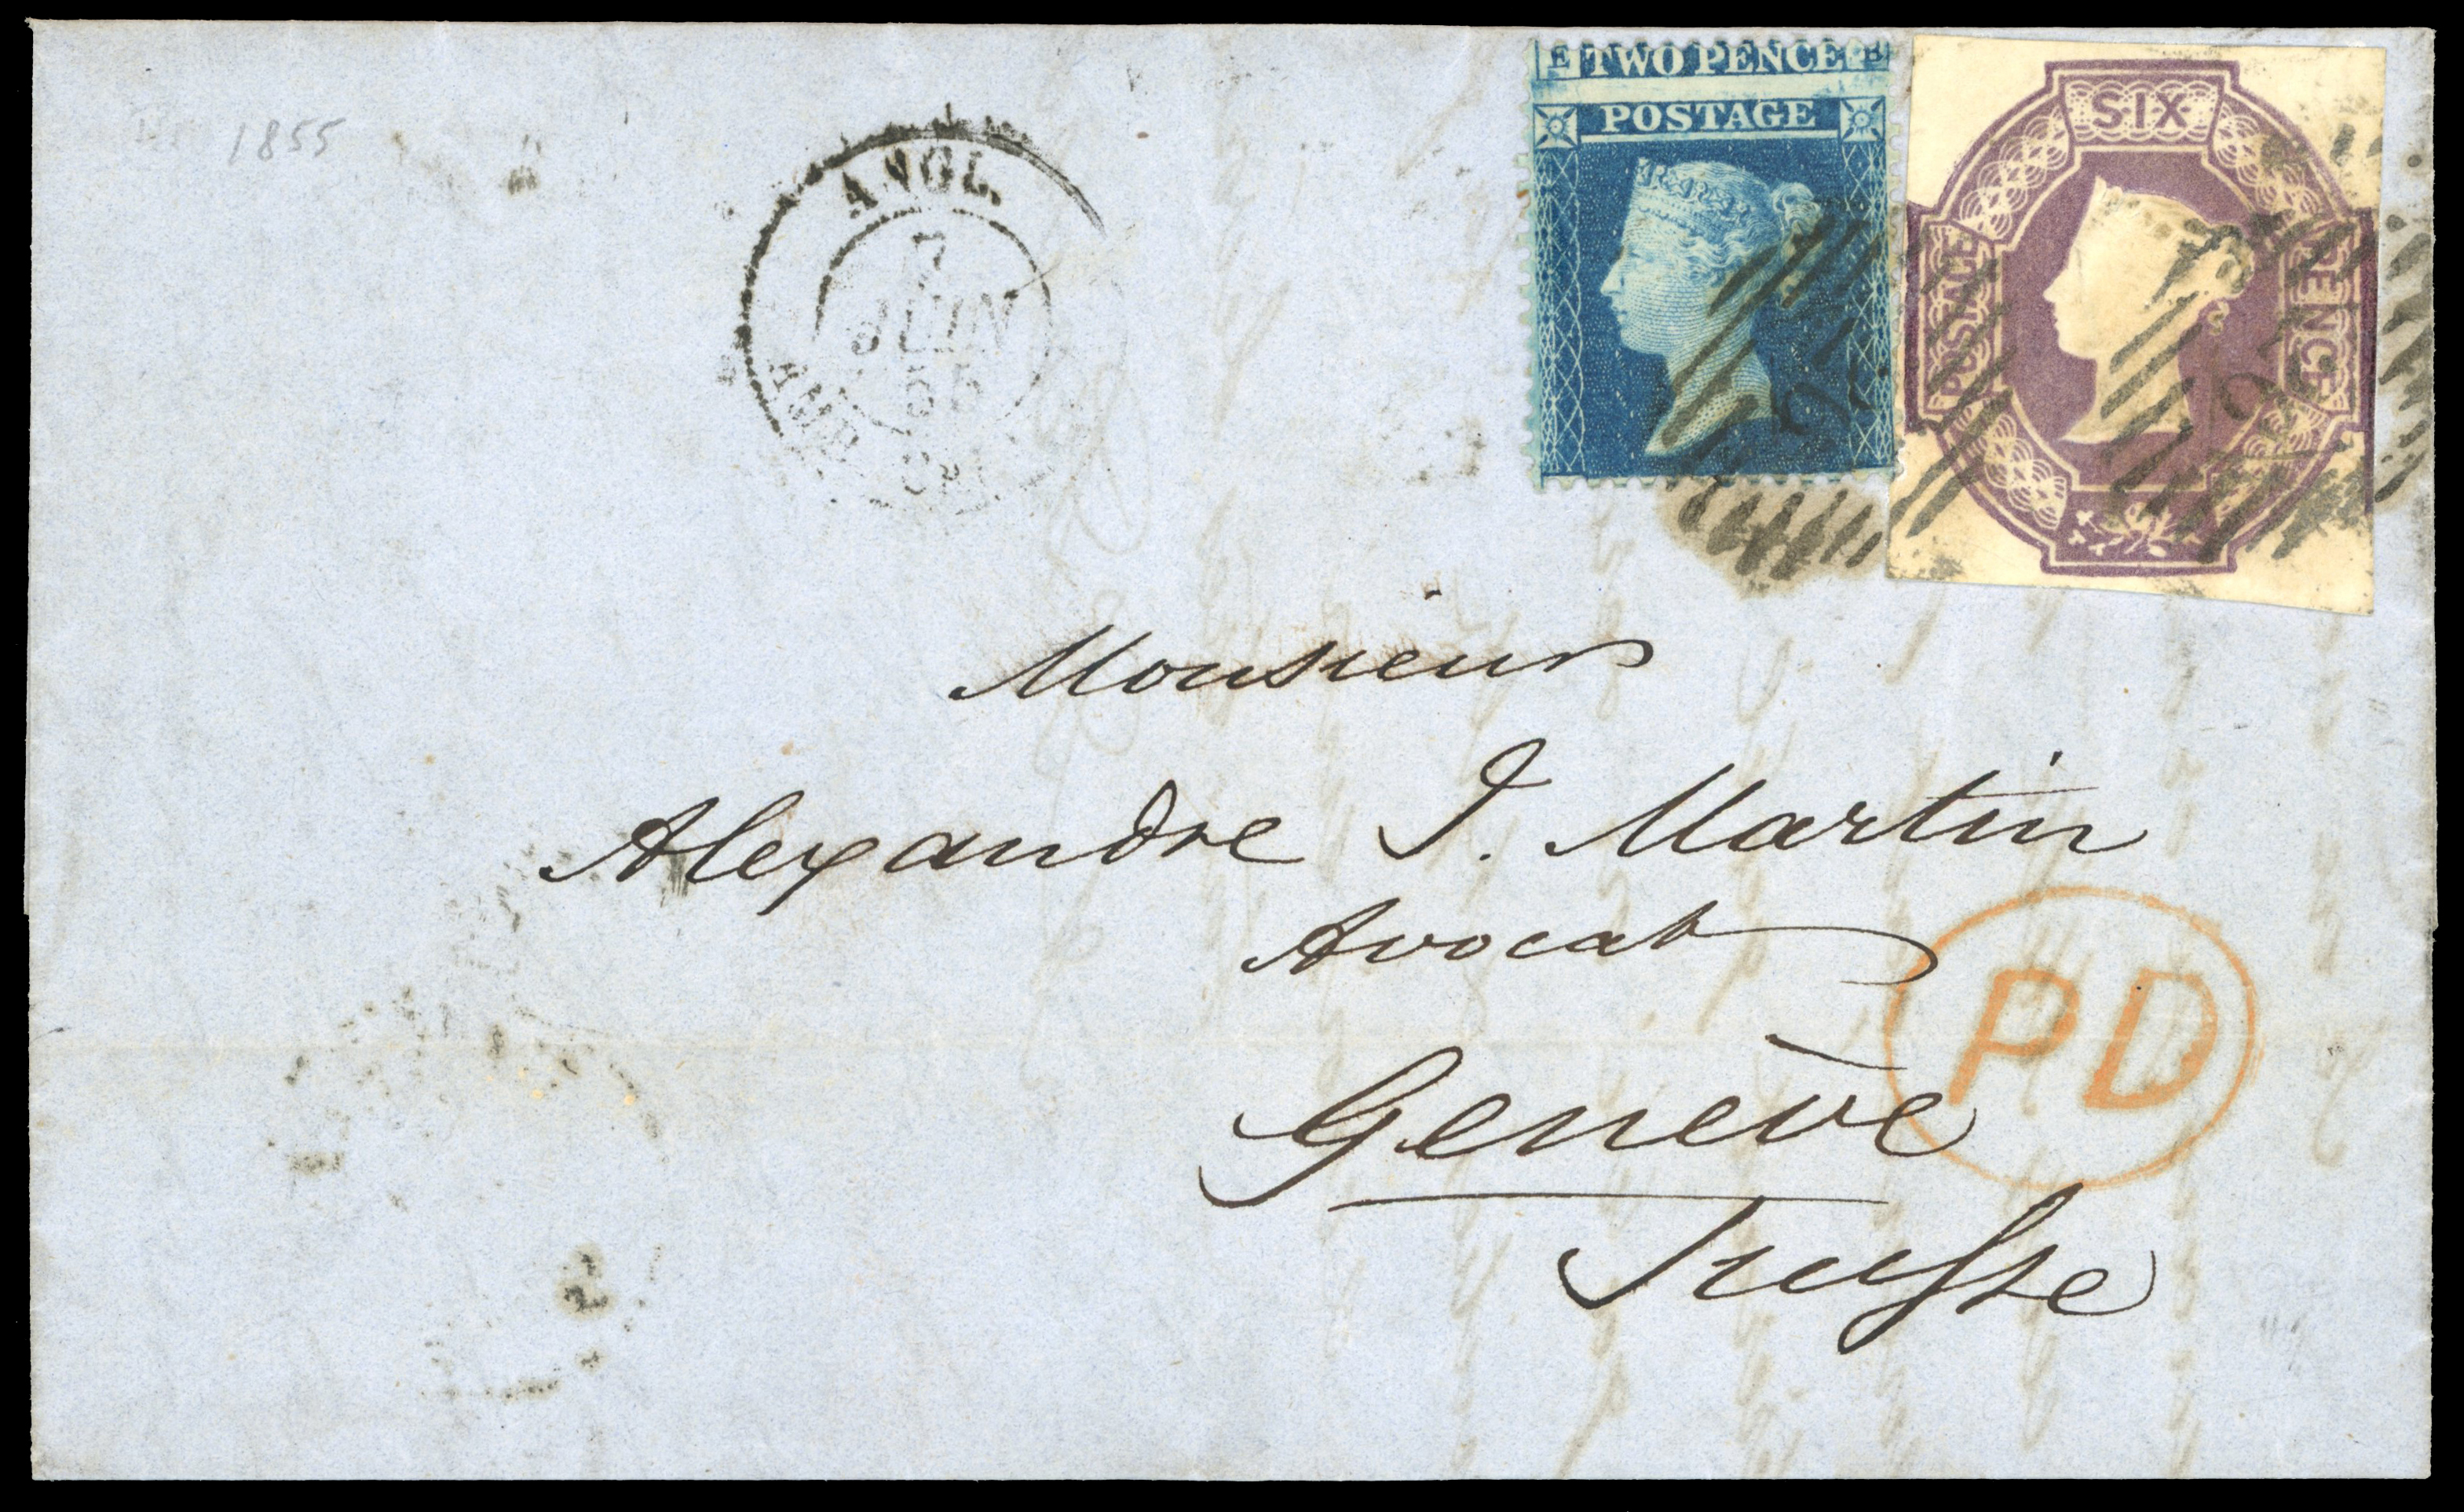 1855
ANGL.
7
JUIN
55
AMB. CAL.
E TWO PENCE B
POSTAGE
SIX
POSTAGE
PENCE
Monsieur
Alexandre J. Martin
Avocat
Genève
Suisse
PD